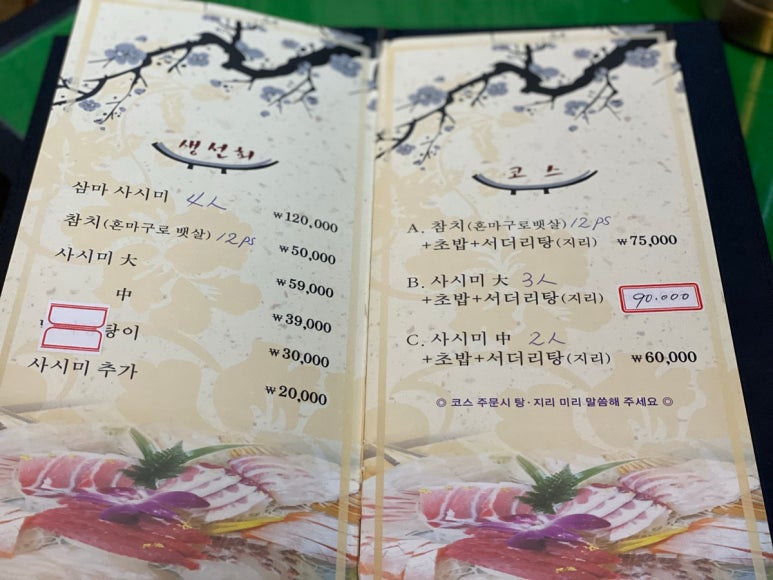 생선회
삼마 사시미 4人 ₩120,000
참치(혼마구로 뱃살) 12ps ₩50,000
사시미 大 ₩59,000
中 ₩39,000
탕이 ₩30,000
사시미 추가 ₩20,000
코스
A. 참치(혼마구로뱃살) 12ps
+초밥+서더리탕(지리) ₩75,000
B. 사시미 大 3人
+초밥+서더리탕(지리) 90.000
C. 사시미 中 2人
+초밥+서더리탕(지리) ₩60,000
◎ 코스 주문시 탕·지리 미리 말씀해 주세요 ◎